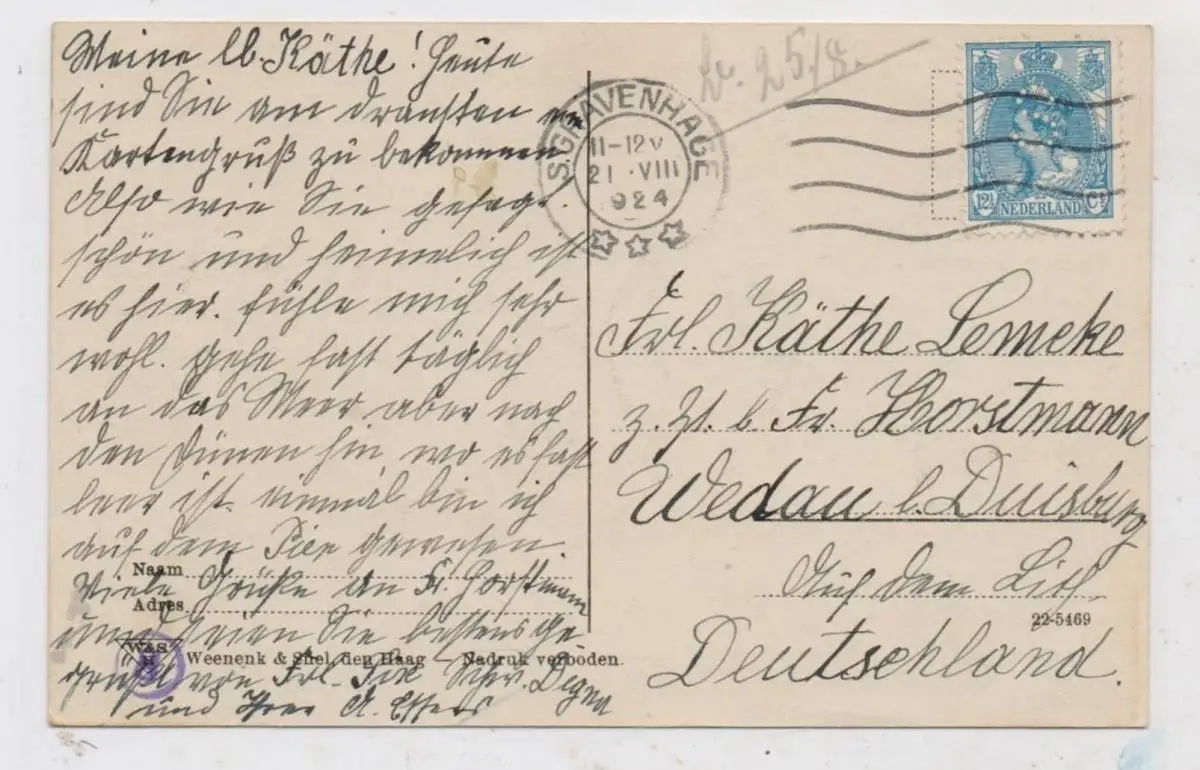 Meine lb. Käthe! Heute
sind Sie am dransten
Kartengruß zu bekommen
Also wie Sie gesagt.
schön und heimelich ist
es hier. fühle mich sehr
wohl. gehe fast täglich
an das Meer aber nach
den Dünen hin, wo es fast
leer ist. einmal bin ich
auf dem Pier gewesen.
Viele Grüße an Fr. Horstmann
und seien Sie bestens ge
grüßt von Frl. Schw.
und Ihrer A.
Naam
Adres
W&S
Weenenk & Snel, den Haag — Nadruk verboden.
25/8.
S.GRAVENHAGE
11-12V
21.VIII
924
12½ Ct
NEDERLAND
Frl. Käthe Lemcke
z. Zt. b. Fr. Horstmann
Wedau b. Duisburg
Auf dem
22-5469
Deutschland.